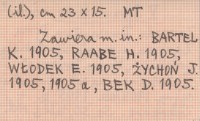 (il.), cm 23 x 15. MT
Zawiera m.in.: BARTEL
K. 1905, RAABE H. 1905,
WŁODEK E. 1905, ŻYCHOŃ J.
1905, 1905a, BEK D. 1905.